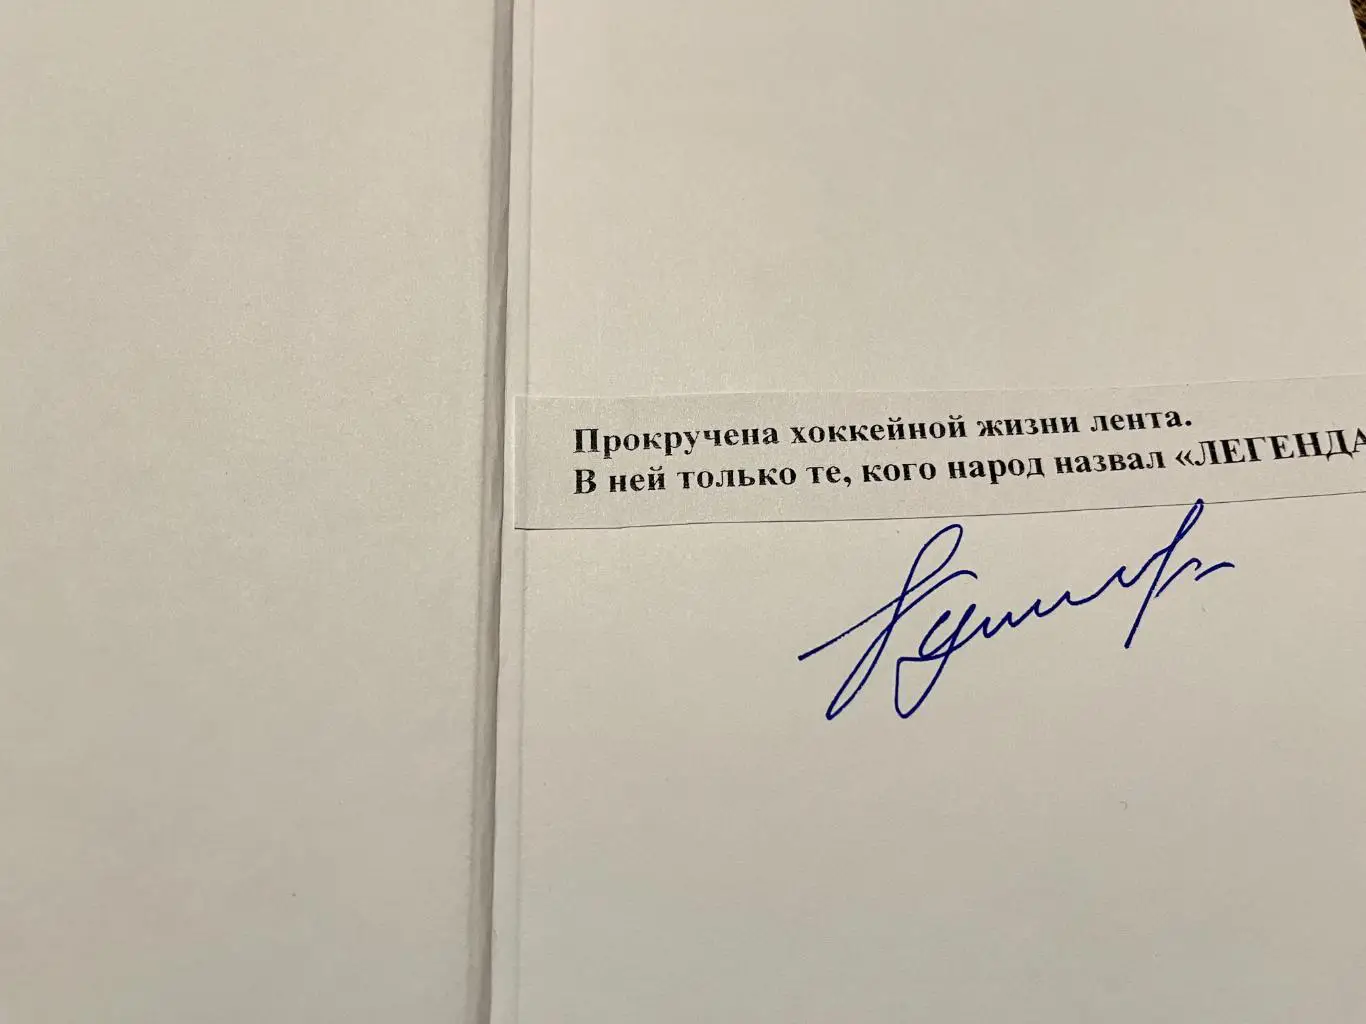 Прокручена хоккейной жизни лента.
В ней только те, кого народ назвал «ЛЕГЕНДА